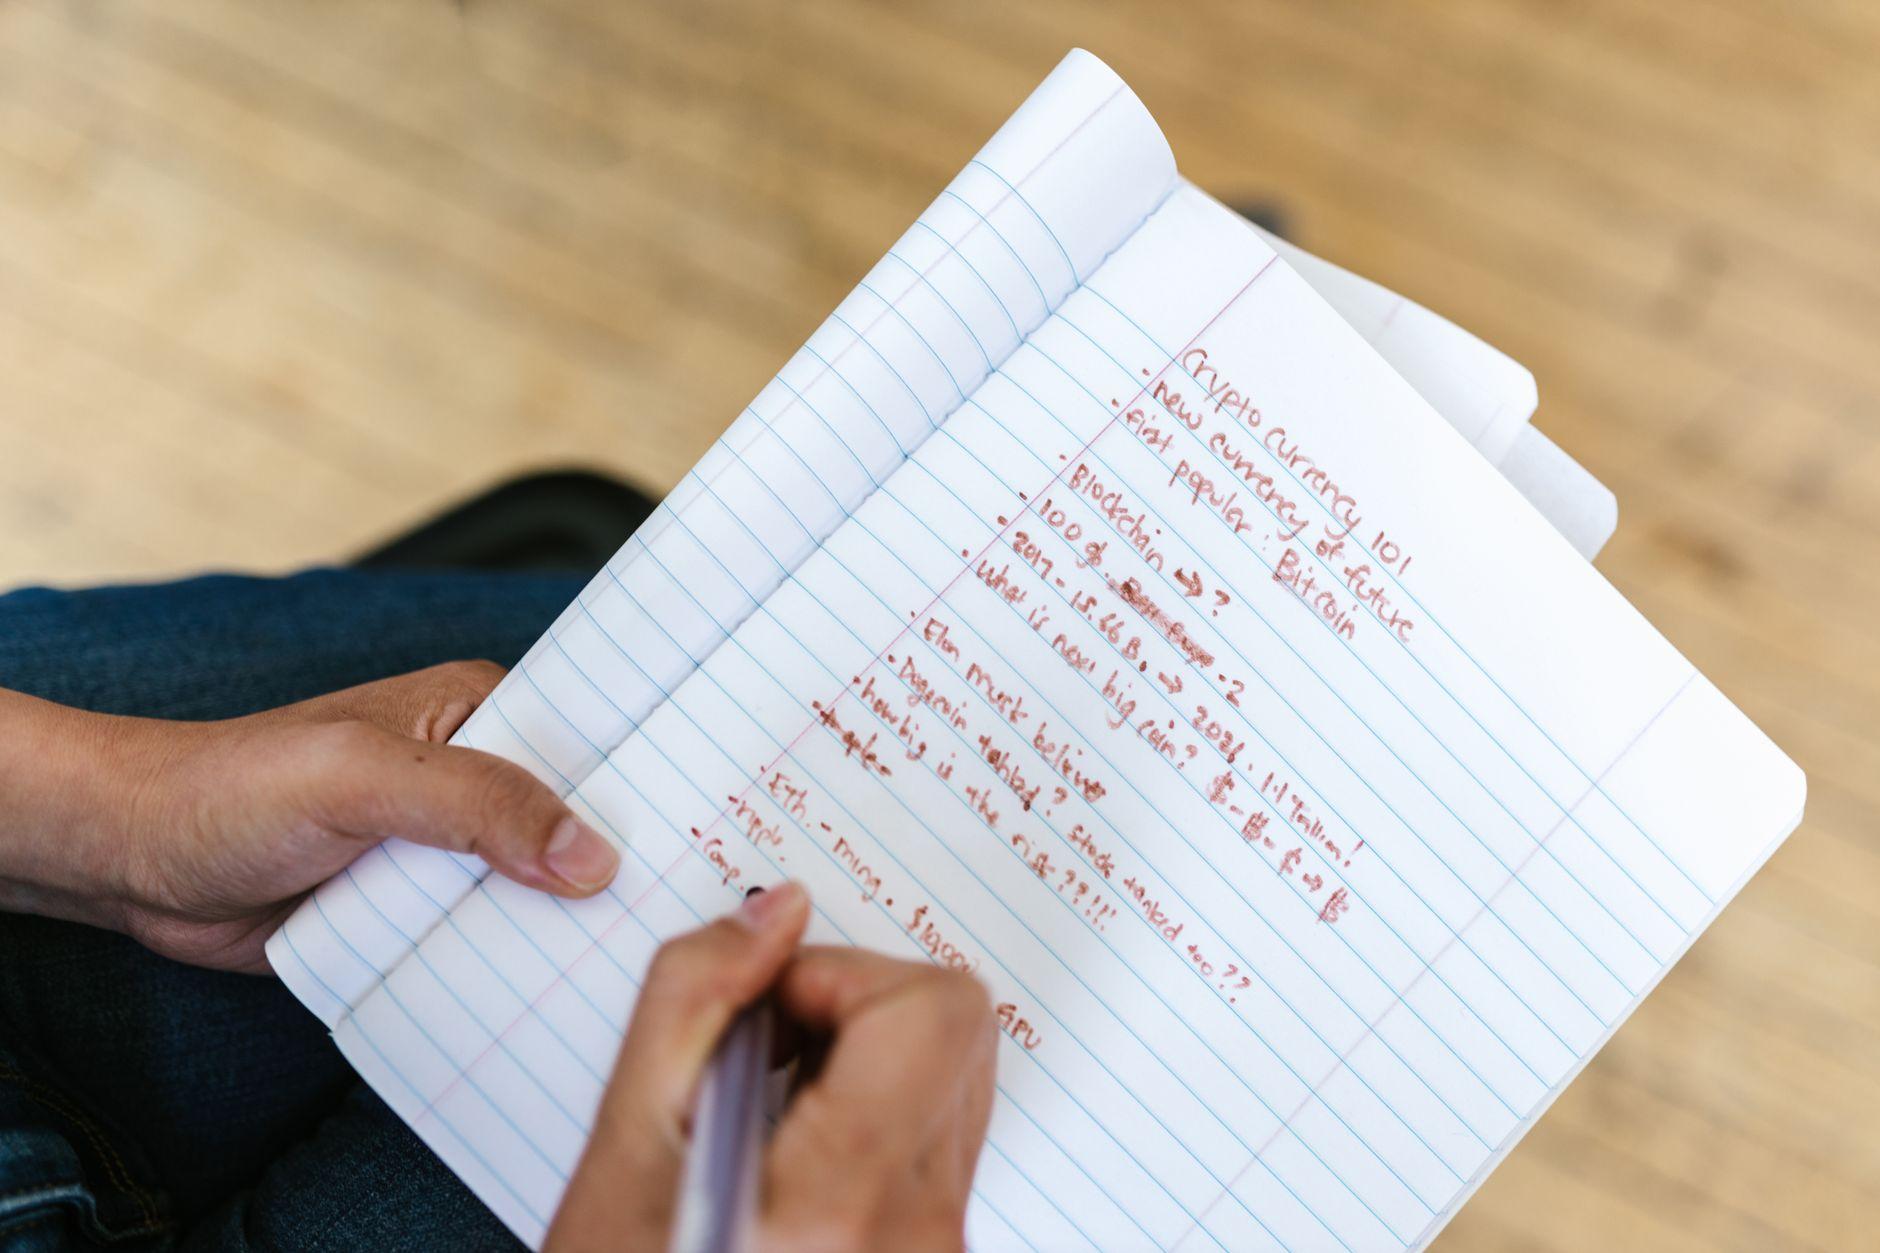 Crypto Currency 101
- new currency of future
- first popular : Bitcoin
- Blockchain → ?
- 100 $. - 2
- 2017 - 15.66 B. → 2021. 1.1 Trillion!
- What is next big coin? $ - ฿ - $ → ฿
- Elon musk believe
- Dogecoin tanked? stock tanked too??
- how big is the risk???!!!
- Eth. - ming. $10,000 GPU
- ripple.
- Comp.